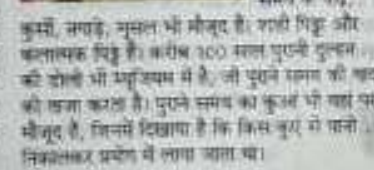 कुर्सी, नगाड़े, मूसल भी मौजूद है। शाही पिट्ठू और
कलात्मक पिट्ठू है। करीब 300 साल पुरानी दुल्हन
की डोली भी म्यूजियम में है, जो पुराने समय की याद
को ताजा करता है। पुराने समय का कुआं भी यहां पर
मौजूद है, जिनमें दिखाया है कि किस कुएं से पानी
निकालकर प्रयोग में लाया जाता था।